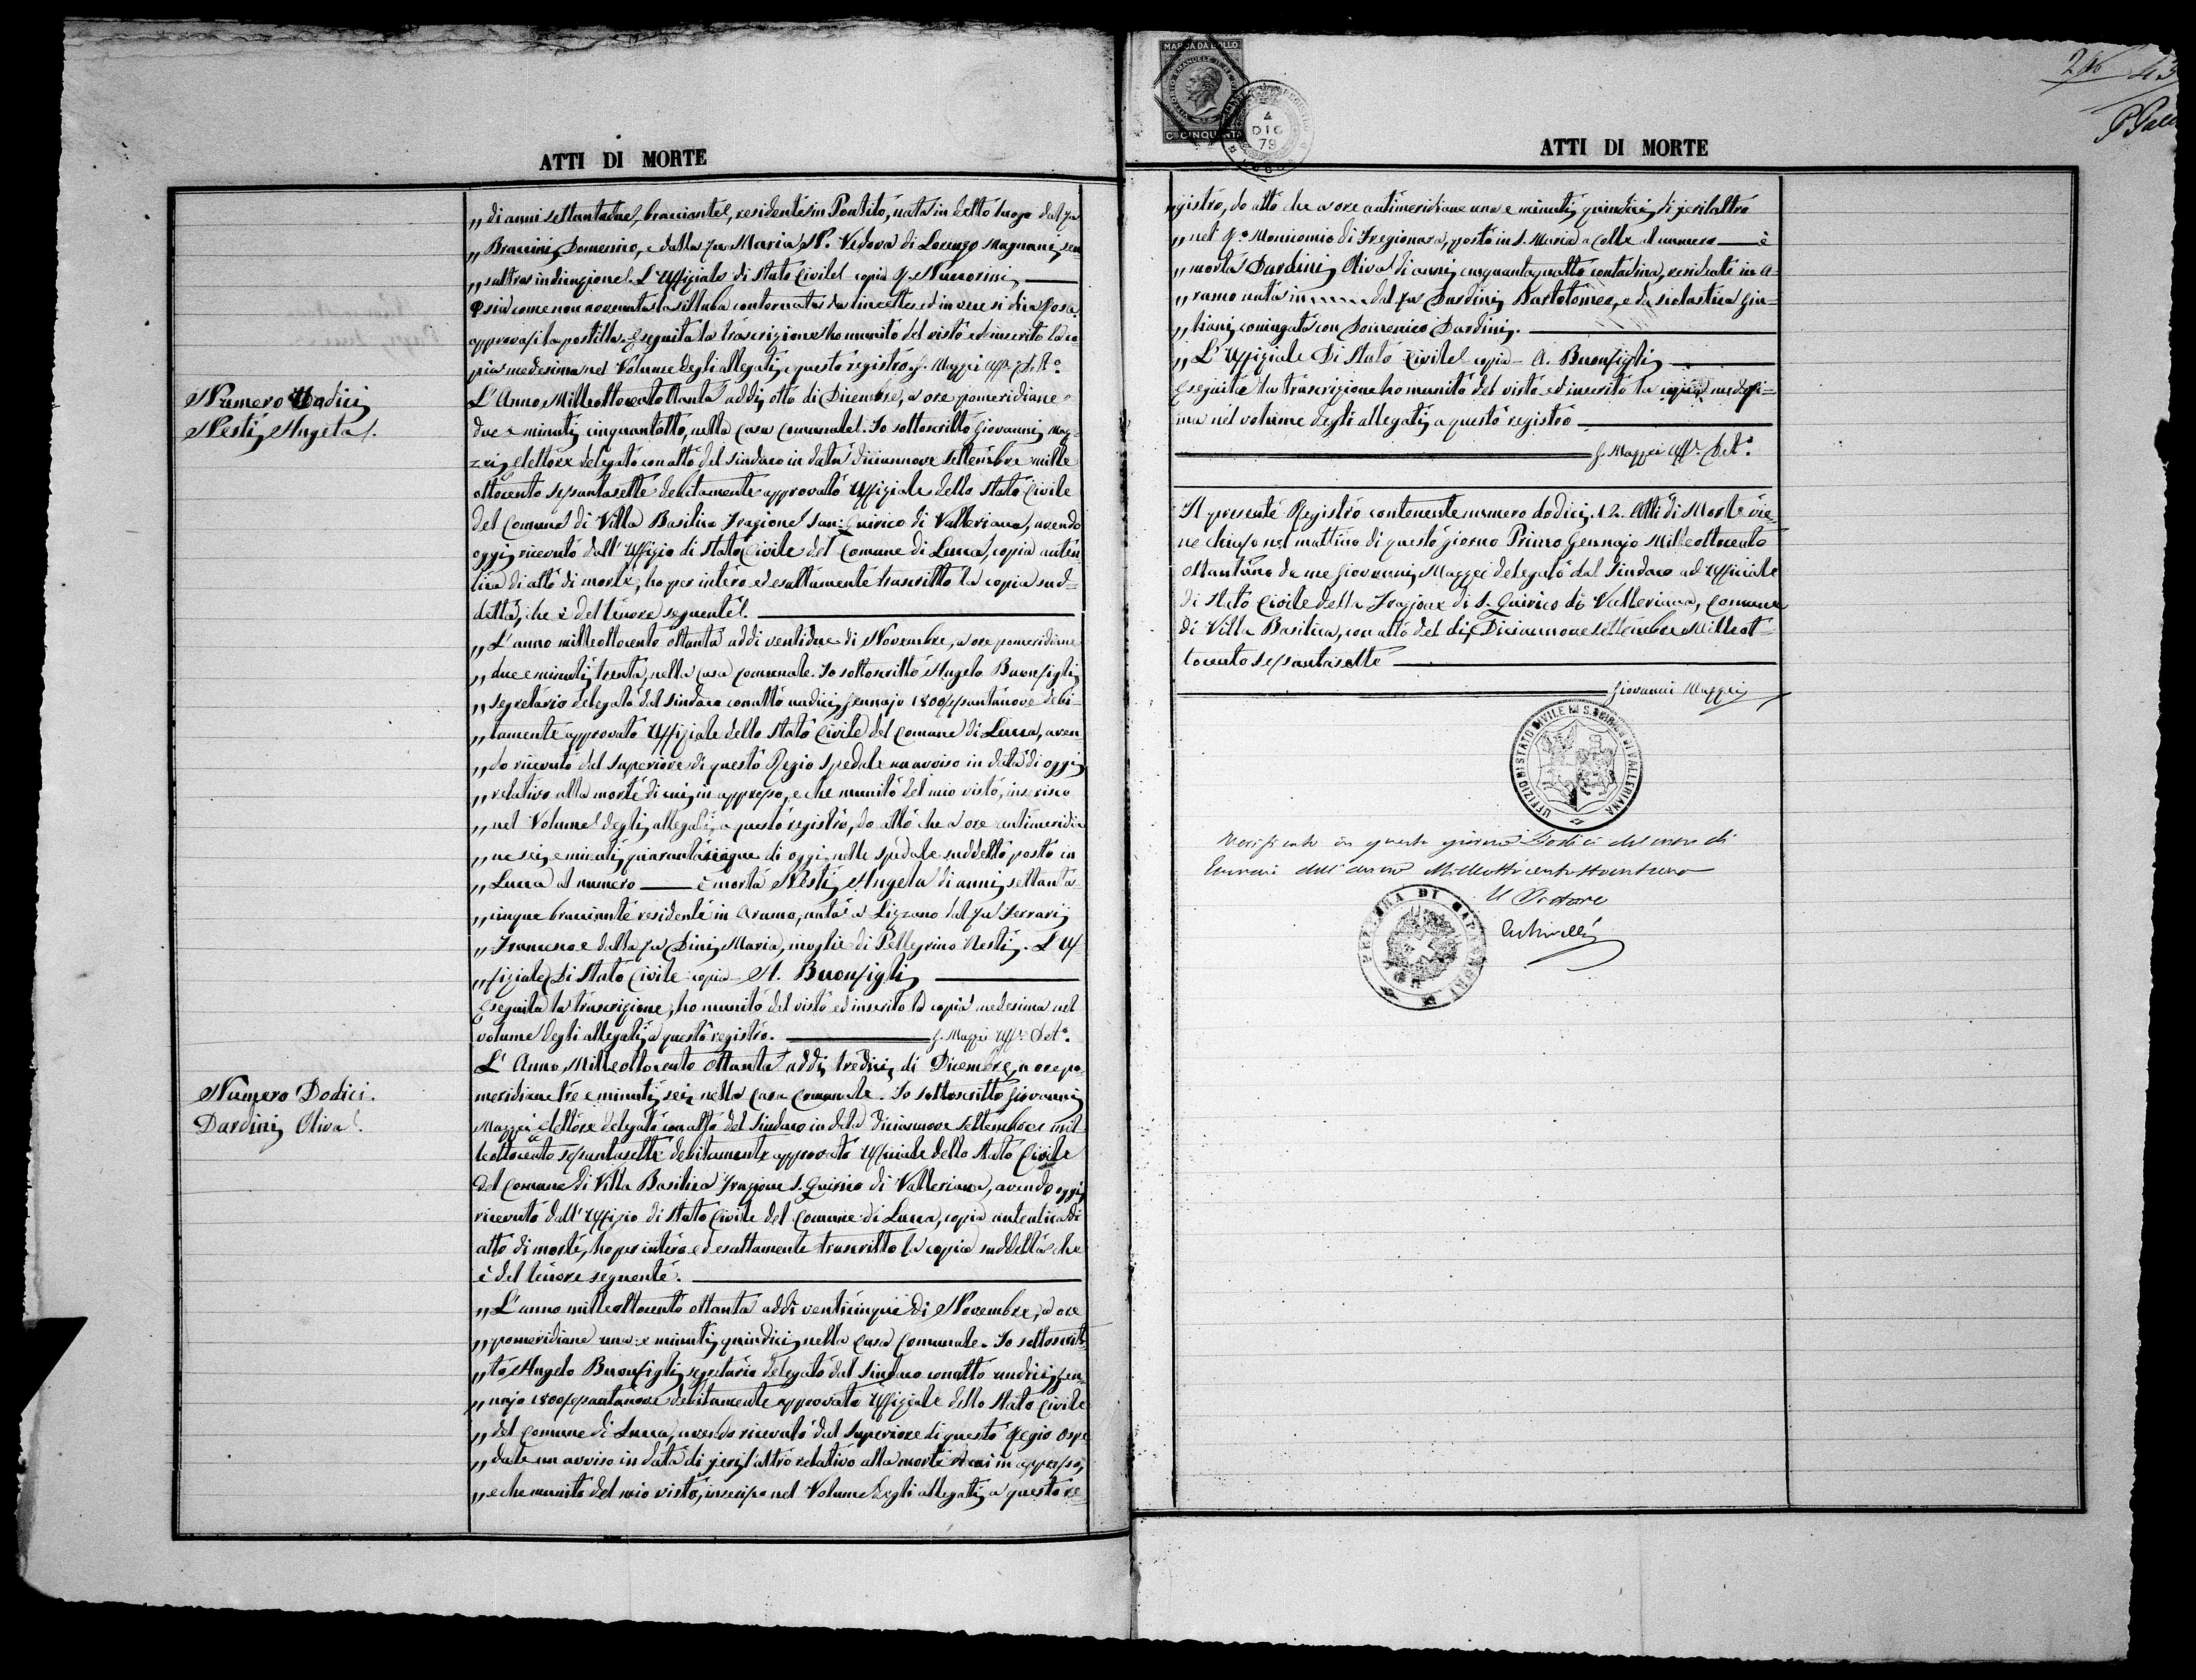 ATTI DI MORTE
„ di anni settantadue, bracciante, residente in Pontito, nata in detto luogo dal fu
„ Braccini Domenico, e dalla fu Maria N. Vedova di Lorenzo Magnani, sen
„ s'altra indicazione. L'Uffiziale di Stato Civile copia
approvasi la postilla. Eseguita la trascrizione ho munito del visto ed inserito la co
pia medesima nel Volume degli allegati a questo registro G. Mazzei Uff.e Del.to
Numero Undici
Nesti Angela.
L'Anno Milleottocentottanta addi otto di Dicembre, a ore pomeridiane
due e minuti cinquantotto, nella Casa Comunale. Io sottoscritto Giovanni Maz
zei, elettore delegato con atto del Sindaco in data diciannove Settembre mille
ottocento sessantasette debitamente approvato Uffiziale dello Stato Civile
del Comune di Villa Basilica Frazione San: Quirico di Valleriana, avendo
oggi, ricevuto dall'Uffizio di Stato Civile del Comune di Lucca, copia auten
tica di atto di morte, ho per intero ed esattamente trascritto la copia sud-
detta, che è del tenore seguente.
„ L'anno milleottocento ottanta addi ventidue di Novembre, a ore pomeridiane
„ due e minuti trenta, nella Casa Comunale. Io sottoscritto Angelo Buonfigli,
„ segretario delegato dal Sindaco con atto undici Gennajo 1800sessantanove debi-
„ tamente approvato Uffiziale dello Stato Civile del Comune di Lucca, aven-
„ do ricevuto dal Superiore di questo Regio Spedale un avviso in data di oggi,
„ relativo alla morte di cui in appresso, e che munito del mio visto, inserisco
„ nel Volume degli allegati a questo registro, do atto che a ore antimeridia
„ ne sei, e minuti quarantacinque di oggi, nello spedale suddetto posto in
„ Lucca al numero è morta Nesti Angela di anni settanta-
„ cinque bracciante residente in Aramo, nata a Lizzano dal fu Ferrari
„ Francesco e dalla fu Dini Maria, moglie di Pellegrino Nesti. L'Uf
„ fiziale Di Stato Civile copia A. Buonfigli
Eseguita la trascrizione, ho munito del visto ed inserito la copia medesima nel
volume degli allegati a questo registro. G. Mazzei Uff.e Del.to
Numero Dodici.
Dardini Oliva.
L'Anno Milleottocento Ottanta addi, tredici di Dicembre, a ore po-
meridiane tre e minuti sei, nella Casa Comunale. Io sottoscritto Giovanni
Mazzei elettore delegato con atto del Sindaco in data diciannove Settembre mil
leottocento sessantasette debitamente approvato Uffiziale dello Stato Civile
del Comune di Villa Basilica Frazione S. Quirico di Valleriana, avendo oggi,
ricevuto dall'Uffizio di Stato Civile del Comune di Lucca, copia autentica di
atto di morte, ho per intero ed esattamente trascritto la copia suddetta che
è del tenore seguente.
„ L'anno milleottocento ottanta addi venticinque di Novembre, a ore
„ pomeridiane una e minuti quindici, nella Casa Comunale. Io sottoscrit-
„ to Angelo Buonfigli, segretario delegato dal Sindaco con atto undici Gen-
„ najo 1800sessantanove debitamente approvato Uffiziale dello Stato Civile
„ del Comune di Lucca, avendo ricevuto dal Superiore di questo Regio Ospe
„ dale un avviso in data di jerl'altro relativo alla morte di cui in appresso,
„ e che munito del mio visto, inserisco nel Volume degli allegati a questo re-
MARCA DA BOLLO
C. CINQUANTA
4
DIC
79
ATTI DI MORTE
gistro, do atto che a ore antimeridiane una e minuti quindici, di jerilaltro
„ nel R.o Manicomio di Fregionara, posto in S. Maria a Colle al numero è
„ morta Dardini Oliva di anni cinquantaquattro contadina, residente in A-
„ ramo nata in dal fu Dardini Bartolomeo, e da Scolastica Giu-
„ liani, coniugata con Domenico Dardini.
„ L'Uffiziale Di Stato Civile copia A. Buonfigli
Eseguita la trascrizione ho munito del visto ed inserito la copia medesi-
ma nel volume degli allegati a questo registro
G. Mazzei Uff.e Del.to
Il presente Registro contenente numero dodici. 12. Atti di Morte vie-
ne chiuso nel mattino di questo giorno Primo Gennajo Milleottocento
Ottantuno da me Giovanni Mazzei delegato dal Sindaco ad Uffiziale
di Stato Civile della Frazione di S. Quirico di Valleriana, Comune
di Villa Basilica, con atto del di Diciannove Settembre Milleot-
tocento Sessantasette
Giovanni Mazzei
UFFIZIO DI STATO CIVILE DI S. QUIRICO DI VALLERIANA
Verificato in questo giorno Dodici del mese di
dell'anno Milleottocentottantuno
Il Pretore